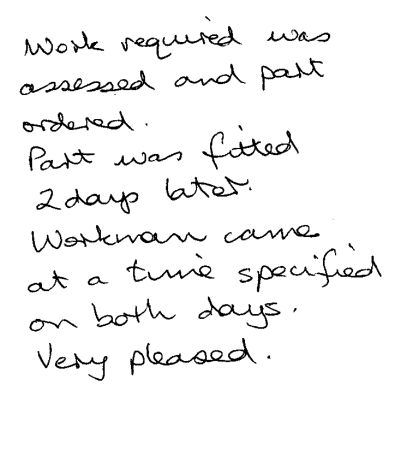 Work required was
assessed and part
ordered.
Part was fitted
2 days later.
Workman came
at a time specified
on both days.
Very pleased.